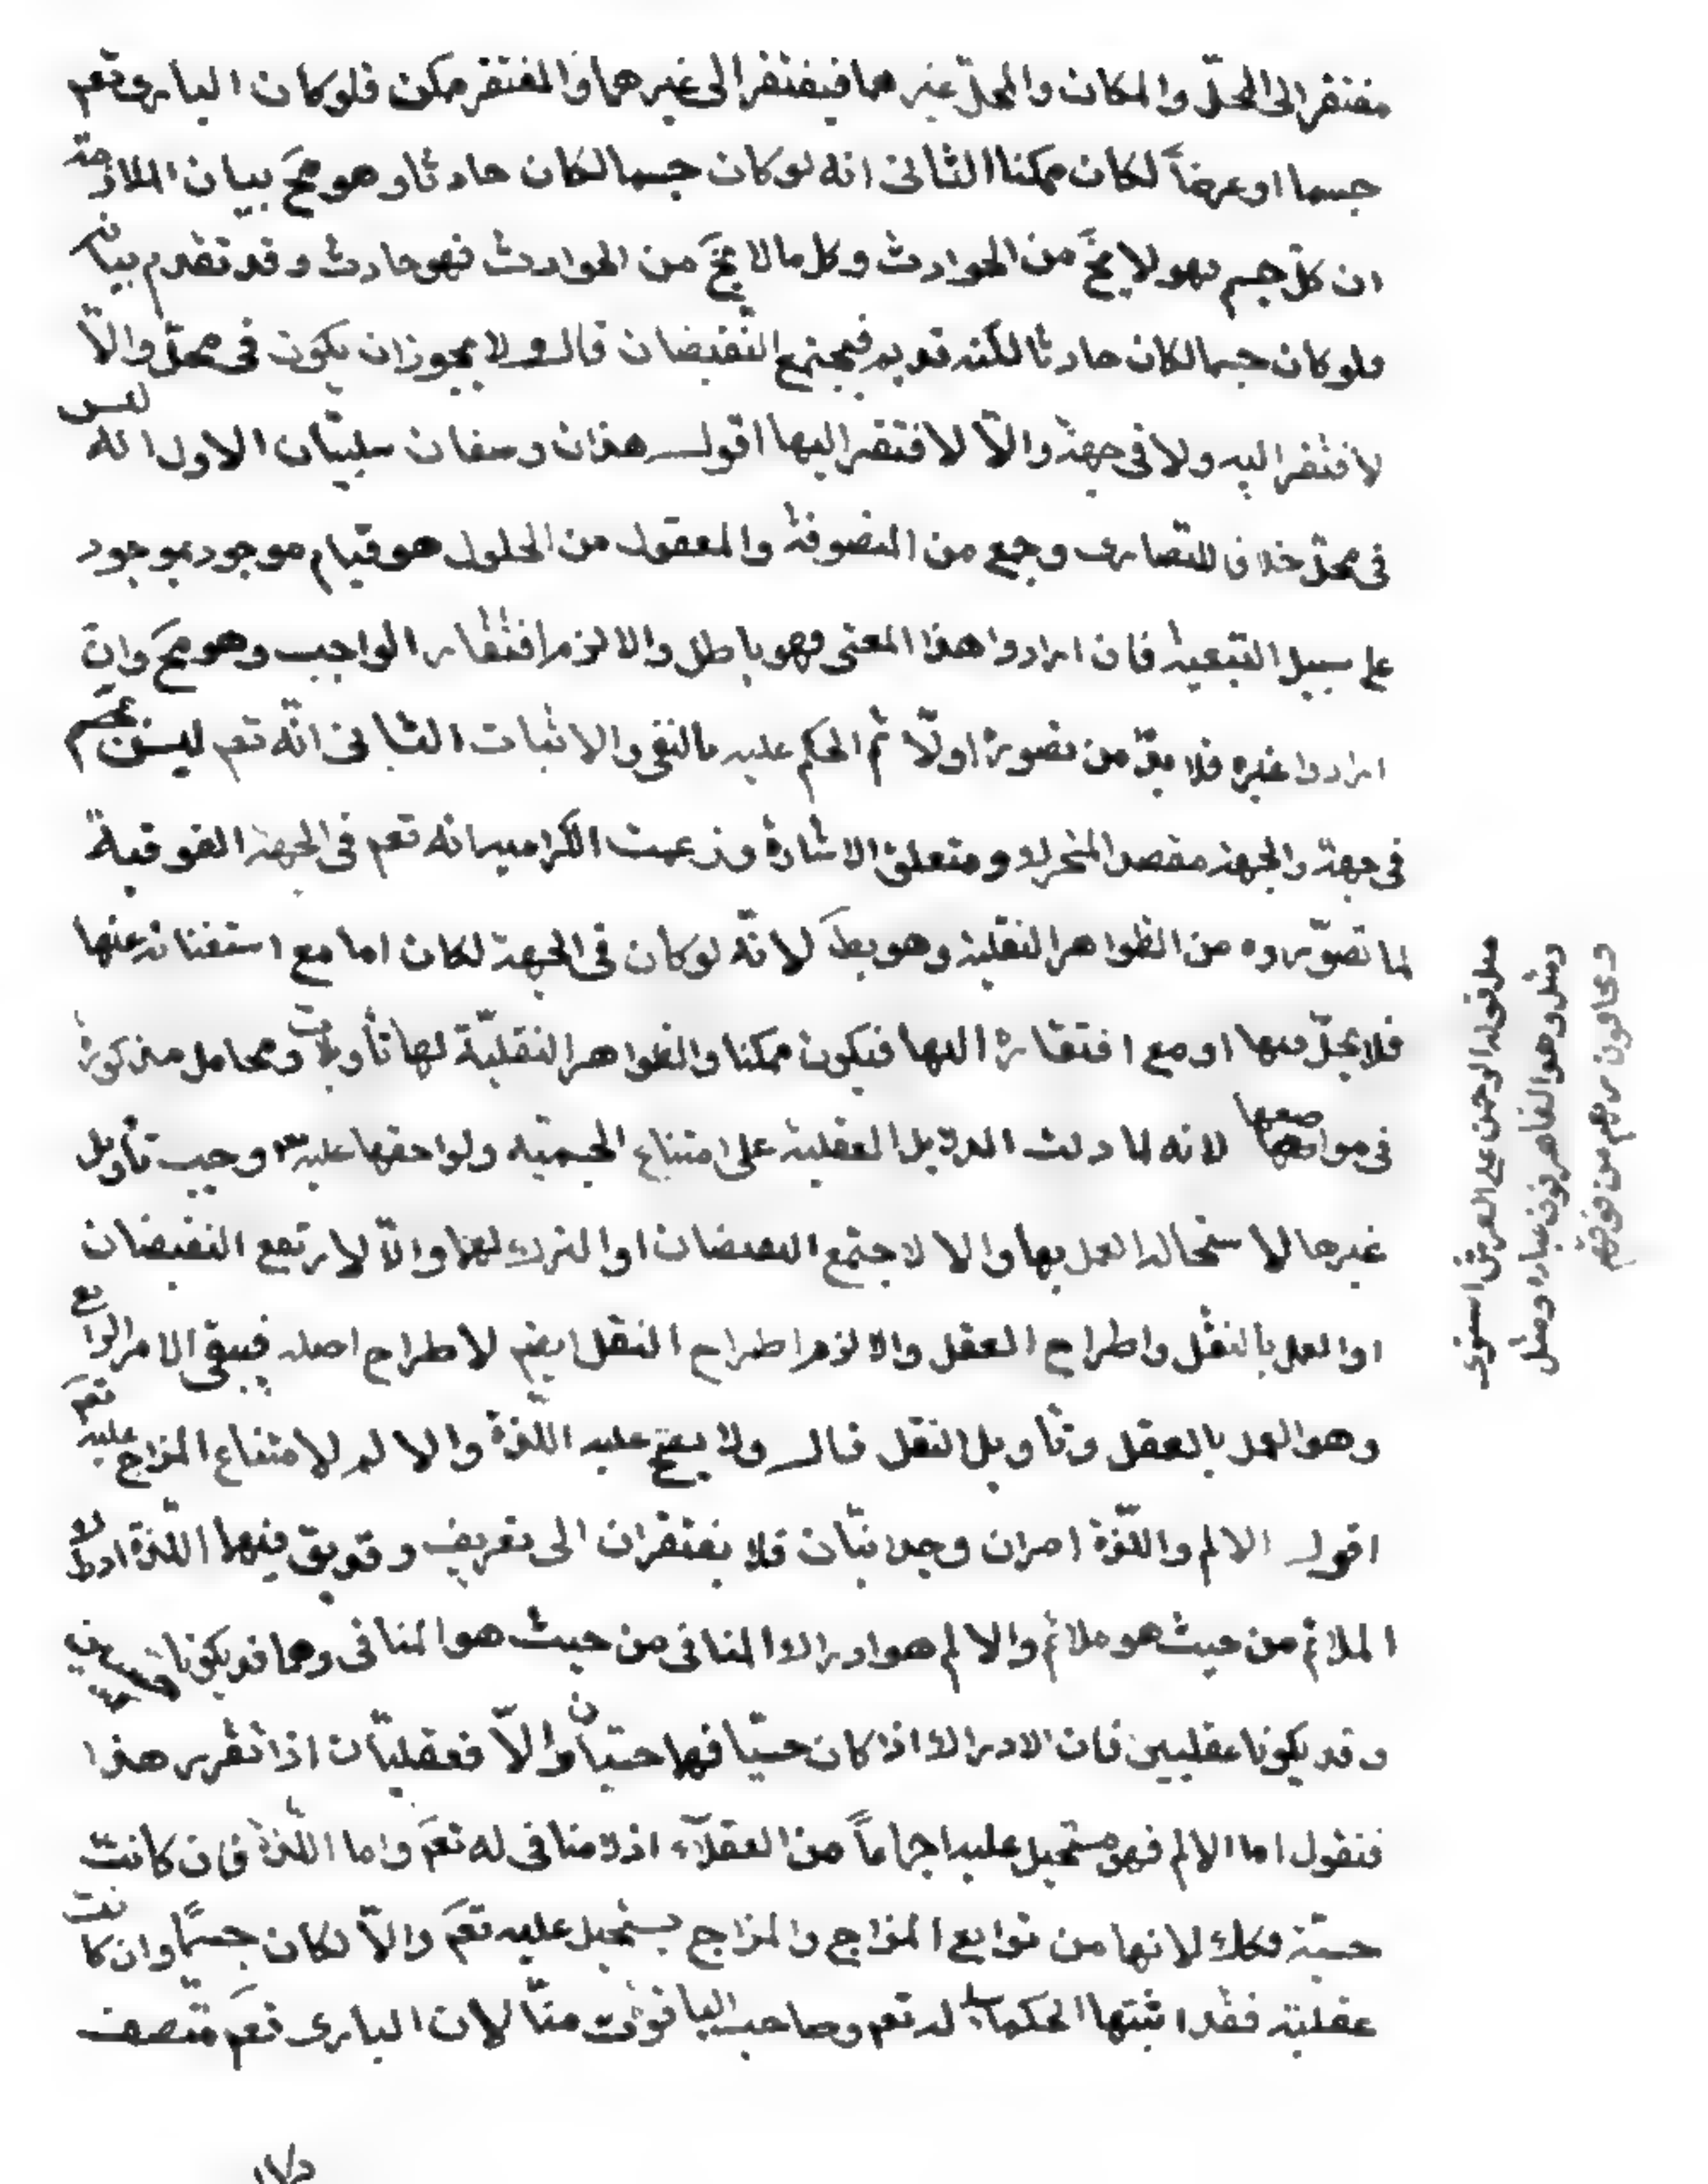 مفتقر الى المحلّ والمكان والمحلّ غيرهما فيفتقر الى غيرهما والمفتقر ممكن فلو كان البارى تعم
جسما او عرضاً لكان ممكنا الثانى انه لو كان جسما لكان حادثا وهو مح بيان الملازمة
ان كلّ جسم فهو لا يخ من الحوادث وكل ما لا يخ من الحوادث فهو حادث وقد تقدم بيانه
فلو كان جسما لكان حادثا لكنه قديم فيجتمع النّقيضان قال ولا يجوز ان يكون فى محلّ والّا
لافتقر اليه ولا فى جهة والّا لافتقر اليها اقول هذان وصفان سلبيّان الاول انه ليس
فى محلّ خلافا للنّصارى وجمع من المتصوفة والمعقول من الحلول هو قيام موجود بموجود
على سبيل التبعية فان ارادوا هذا المعنى فهو باطل والا لزم افتقار الواجب وهو مح وان
ارادوا غيره فلا بدّ من تصوره اولّا ثم الحكم عليه بالنفى والاثبات الثانى انّه تعم ليس
فى جهة والجهة مقصد المتحرك ومتعلق الاشارة وزعمت الكرامية انه تعم فى الجهة الفوقية
لما تصوّروه من الظواهر النقلية وهو بط لانّه لو كان فى الجهة لكان اما مع استغنائه عنها
فلا يحلّ فيها او مع افتقاره اليها فيكون ممكنا والظواهر النقليّة لها تأويلات ومحامل مذكورة
فى مواضعها لانه لما دلت الدلايل العقلية على امتناع الجسمية ولواحقها عليه وجب تأويل
غيرها لاستحالة العمل بها والا لاجتمع النقيضان او الترك لهما والّا لارتفع النقيضان
او العمل بالنقل واطراح العقل والا لزم اطراح النقل ايضم لاطراح اصله فيبقى الامر الرابع
وهو العمل بالعقل وتأويل النقل قال ولا يصح عليه اللّذة والالم لامتناع المزاج عليه تعم
اقول الالم واللّذة امران وجدانيّان فلا يفتقران الى تعريف وقد يق فيهما اللّذة ادراك
الملائم من حيث هو ملائم والالم هو ادراك المنافى من حيث هو المنافى وهما قد يكونا حسيين
وقد يكونا عقليين فان الادراك اذا كان حسيّا فهما حسيّان والّا فعقليّان اذا تقرر هذا
فنقول اما الالم فهو مستحيل عليه اجماعاً من العقلاء اذ لا منافى له تعم واما اللّذة فان كانت
حسيّة فكك لانها من توابع المزاج والمزاج يستحيل عليه تعم والّا لكان جسمًا وان كانت
عقلية فقد اثبتها الحكماء له تعم وصاحب الياقوت منّا لان البارى تعم متّصف
مثل قوله الرحمن على العرش استوى
ومثل وهو القاهر فوق عباده ومثل
يخافون ربهم من فوقهم